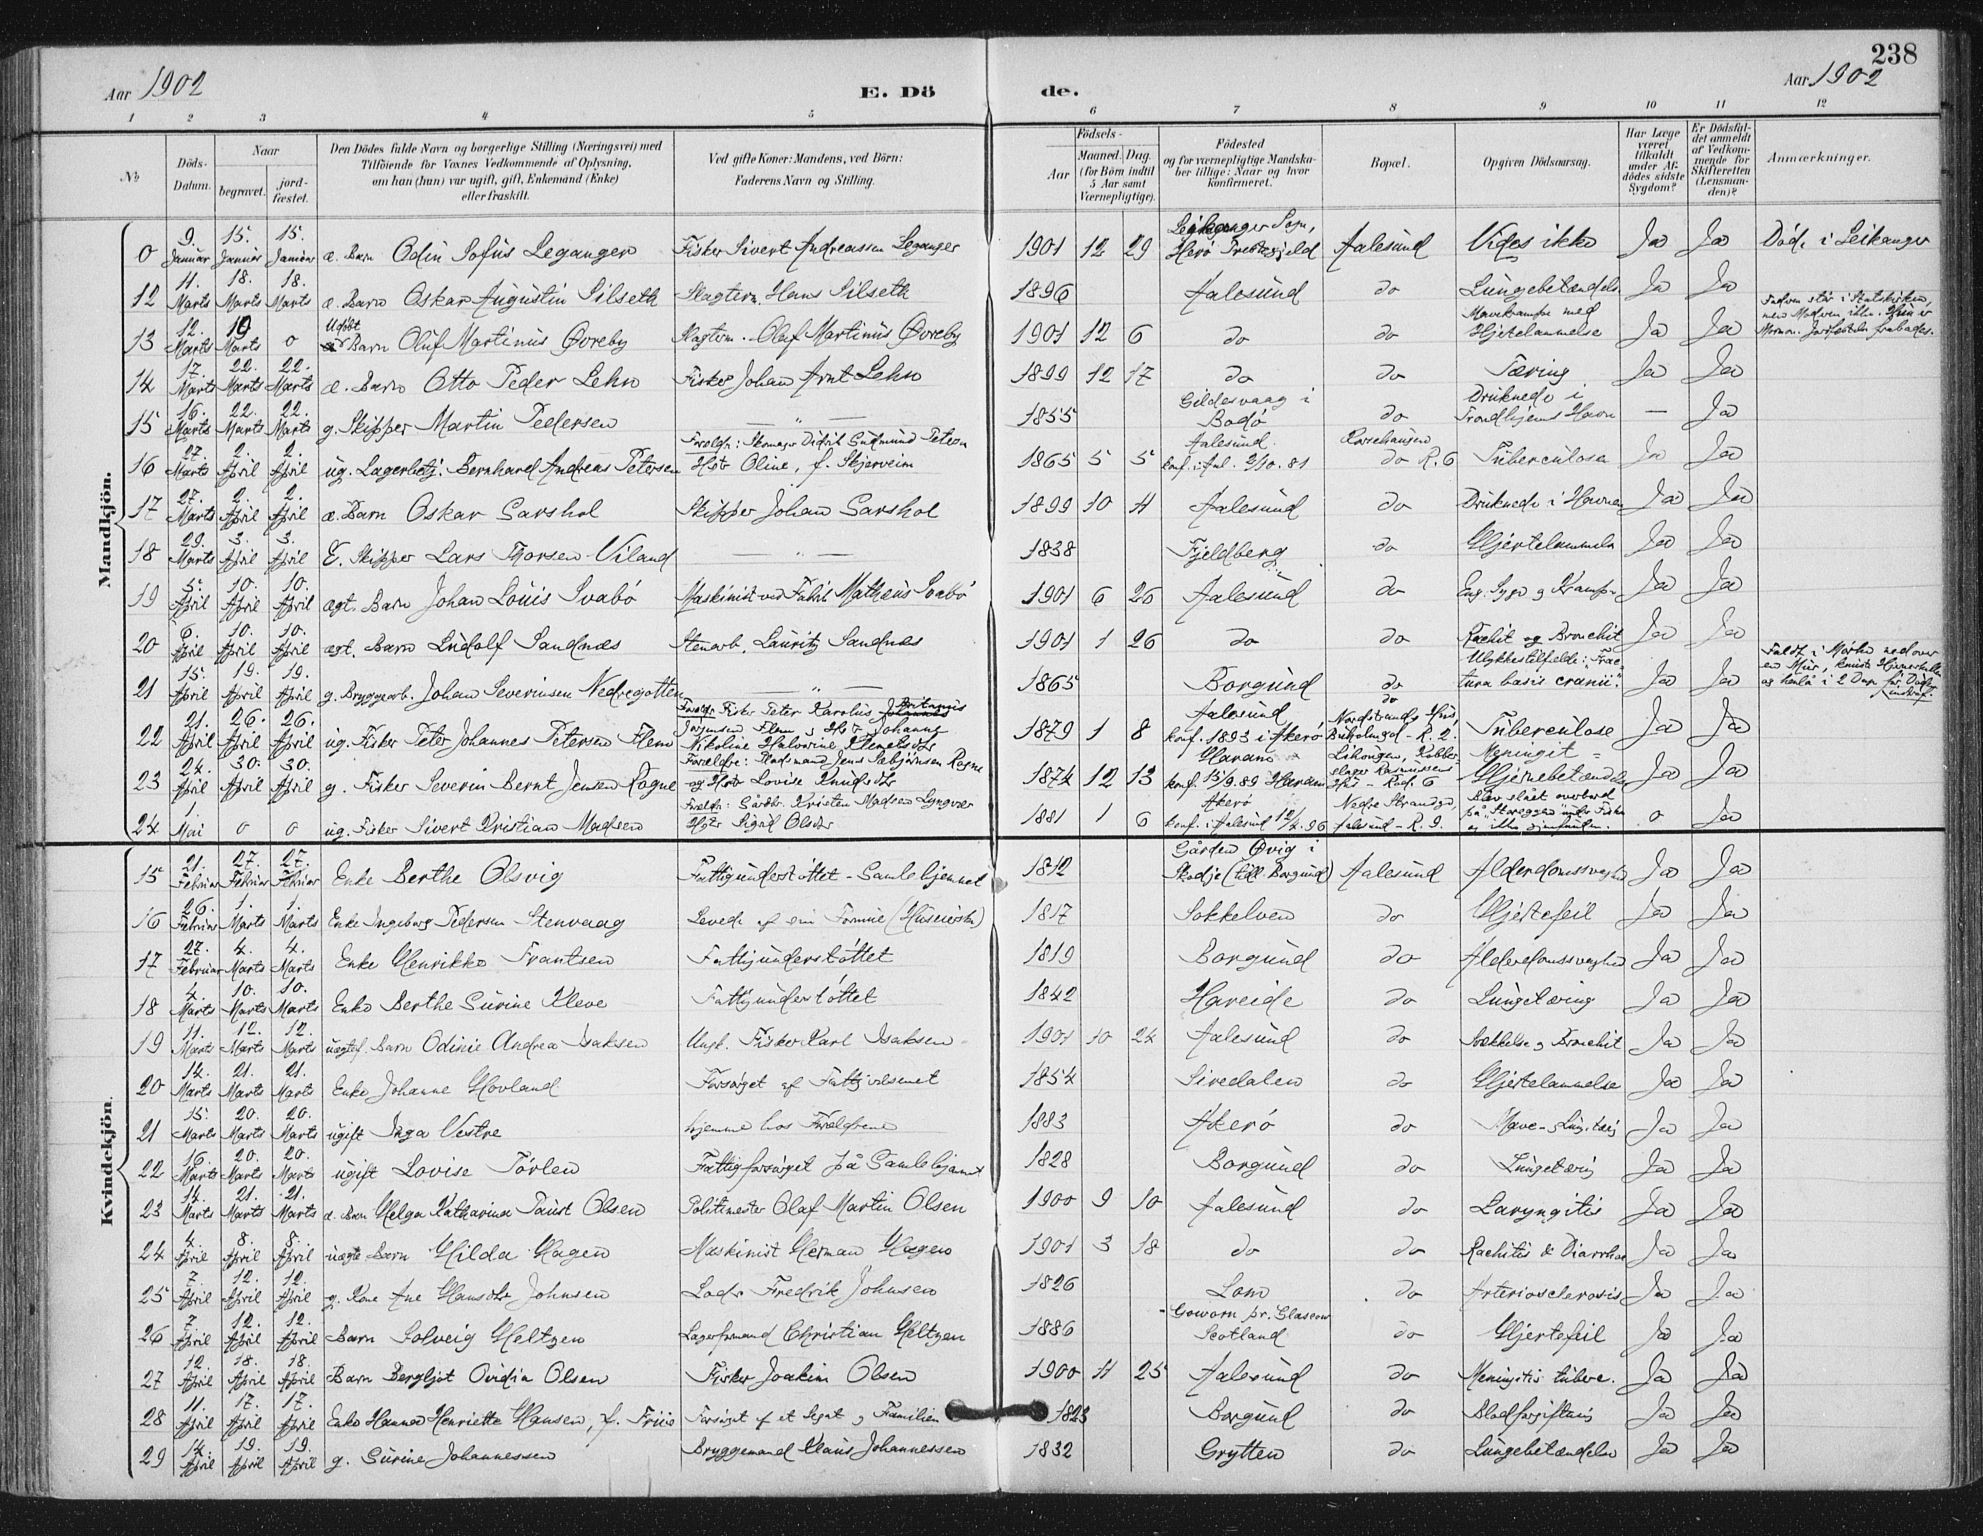 238
Aar 1902
E. Dö
de.
Aar 1902
1 2 3 4 5 6 7 8 9 10 11 12
No
Döds-Datum.
Naar
begravet.
jord-fæstet.
Den Dödes fulde Navn og borgerlige Stilling (Næringsvei) med
Tilföiende for Voxnes Vedkommende af Oplysning,
om han (hun) var ugift, gift, Enkemand (Enke)
eller fraskilt.
Ved gifte Koner: Mandens, ved Börn:
Faderens Navn og Stilling.
Födsels-
Aar
Maaned. Dag.
(for Börn indtil
5 Aar samt
Værnepligtige).
Födested
og for værnepligtige Mandska-
ber tillige: Naar og hvor
konfirmeret.
Bopæl.
Opgiven Dödsaarsag.
Har Læge
været
tilkaldt
under Af-
dödes sidste
Sygdom?
Er Dödsfal-
det anmeldt
af Vedkom-
mende for
Skifteretten
(Lensman-
den)?
Anmærkninger.
Mandkjön.
0 9. Januar 15. Januar 15. Januar æ. Barn Odin Sofus Leganger Fisker Sivert Andreassen Leganger 1901 12 29 Leikanger Sogn, Herø Præstegjeld Aalesund Vides ikke Ja Ja Döbt i Leikanger
12 11. Marts 18. Marts 18. Marts æ. Barn Oskar Augustin Silseth Slagterm. Hans Silseth 1896 Aalesund do Lungebetændelse Ja Ja
13 12. Marts 19 Marts 0 Udöbt Barn Oluf Martinius Øvreby Slagterm. Olaf Martinus Øvreby 1901 12 6 do do Mavekrampe med Hjertelammelse Ja Ja Faderen står i Statskirken, men Moderen ikke. Hun er Mormon. Jordfæstelse frabades.
14 17. Marts 22. Marts 22. Marts æ. Barn Otto Peder Lehn Fisker Johan Arnt Lehn 1899 12 17 do do Tæring Ja Ja
15 16. Marts 22. Marts 22. Marts g. Skipper Martin Pedersen — " — 1855 Gildesvaag i Bodö do Druknede i Trondhjems Havn — Ja
16 27. Marts 2. April 2. April ug. Lagerbetj. Bernhard Andreas Petersen Forældr: Skomager Didrik Gudmund Peterson Hstr Oline, f. Skjerveim 1865 5 5 Aalesund. konf. i Aal. 2/10.81 do R. 6 Tuberculose Ja Ja
17 27. Marts 2. April 2. April æ. Barn Oskar Sarshol Skipper Johan Sarshol 1899 10 11 Aalesund do Druknede i Havnen Ja Ja
18 29. Marts 3. April 3. April E. Skipper Lars Thorsen Viland — " — 1838 Fjeldberg do Hjertelammelse Ja Ja
19 5. April 10. April 10. April ægt. Barn Johan Louis Svabö Maskinist ved Fabrik Matheus Svabö 1901 6 26 Aalesund do Eng. Syge og Krampe Ja Ja
20 6. April 10. April 10. April ægt. Barn Ludolf Sandnæs Stenarb. Lauritz Sandnæs 1901 1 26 do do Rachit og Bronchit Ja Ja
21 15. April 19. April 19. April g. Bryggearb. Johan Severinsen Nedregotten — " — 1865 Borgund do Ulykkestilfælde: Fractura basis cranii. Ja Ja Faldt i Mørke ned over en Mur, knuste Hjerneskallen og henlå i 2 Dage før Døden indtraf.
22 21. April 26. April 26. April ug. Fisker Peter Johannes Petersen Flem Forældr: Fisker Peter Karolus Antonius Jørgensen Flem og Hstr Johanne Nikoline Halvorine Klemetsdtr 1879 1 8 Aalesund konf. 1893 i Akerö do Nordstrands Hus, Buholmgd - R. 2. Tuberculose Ja Ja
23 24. April 30. April 30. April g. Fisker Severin Bernt Jensen Rogne Forældre: Pladsmand Jens Sæbjørnsen Rogne og Hstr Lovise Knudsdtr 1874 12 13 Haram konf. 15/9.89 Haram Lihaugen, Kobberslager Rasmussens Hus - Rod. 6 Meningit = Hjernebetændelse Ja Ja
24 1. Mai 0 0 ug. Fisker Sivert Kristian Madsen Forældr: Gårdbr. Kristen Madsen Lyngvær Hstr Sigrid Olsdtr 1881 1 6 Akerö konf. i Aalesund 12/4.96 Nedre Strandgd, Aalesund - R. 9. Blev slået overbord på "Storeggen" under Fiske og ikke gjenfunden. 0 Ja
Kvindekjön.
15 21. Februar 27. Februar 27. Februar Enke Berthe Olsvig Fattigunderstöttet - Samlehjemmet 1812 Gården Øvig i Skodje (till. Borgund) Aalesund Alderdomssvaghed Ja Ja
16 26. Februar 1. Marts 1. Marts Enke Ingeborg Pedersen Stenvaag Levede af sin Formue (Huseierske) 1817 Sokkelven do Hjertefeil Ja Ja
17 27. Februar 4. Marts 4. Marts Enke Henrikke Frantsen Fattigunderstöttet 1819 Borgund do Alderdomssvaghed Ja Ja
18 4. Marts 10. Marts 10. Marts Enke Berthe Surine Kleve Fattigunderstöttet 1842 Hareide do Lungetæring Ja Ja
19 11. Marts 12. Marts 12. Marts uægtef. Barn Odinie Andrea Isaksen Ungk. Fisker Karl Isaksen 1901 10 24 Aalesund do Svækkelse og Bronchit Ja Ja
20 14. Marts 21. Marts 21. Marts Enke Johanne Hovland Forsörget af Fattigvæsenet 1854 Siredalen do Hjertelammelse Ja Ja
21 15. Marts 20. Marts 20. Marts ugift Inga Vestre hjemme hos Forældrene 1883 Akerö do Mave- og Lungetæring Ja Ja
22 16 Marts 20. Marts 20. Marts ugift Lovise Törlen Fattigforsörget på Samlehjemmet 1828 Borgund do Lungetæring Ja Ja
23 14. Marts 21. Marts 21. Marts æ. Barn Helga Katharina Paust Olsen Politimester Olaf Martin Olsen 1900 9 10 Aalesund do Laryngitis Ja Ja
24 4. April 8. April 8. April uægte Barn Hilda Hagen Maskinist Herman Hagen 1901 3 18 do do Rachitis & Diarrhoe Ja Ja
25 7. April 12. April 12. April g. Kone Ane Hansdtr Johnsen Lods Fredrik Johnsen 1826 Lom do Arteriosclerosis Ja Ja
26 7 April 12. April 12. April Barn Solveig Heltzen Lagerformand Christian Heltzen 1886 Goworn pr. Glascow Scotland do Hjertefeil Ja Ja
27 12. April 18. April 18. April Barn Bergljot Ovidia Olsen Fisker Joakim Olsen 1900 11 25 Aalesund do Meningitis tuberc. Ja Ja
28 11. April 17. April 17. April Enke Hanna Henriette Hansen, f. Friis Forsörget af et Legat og Familien 1823 Borgund do Blodforgiftning Ja Ja
29 14. April 19. April 19. April g. Surine Johannessen Bryggemand Klaus Johannessen 1832 Grytten do Lungebetændelse Ja Ja